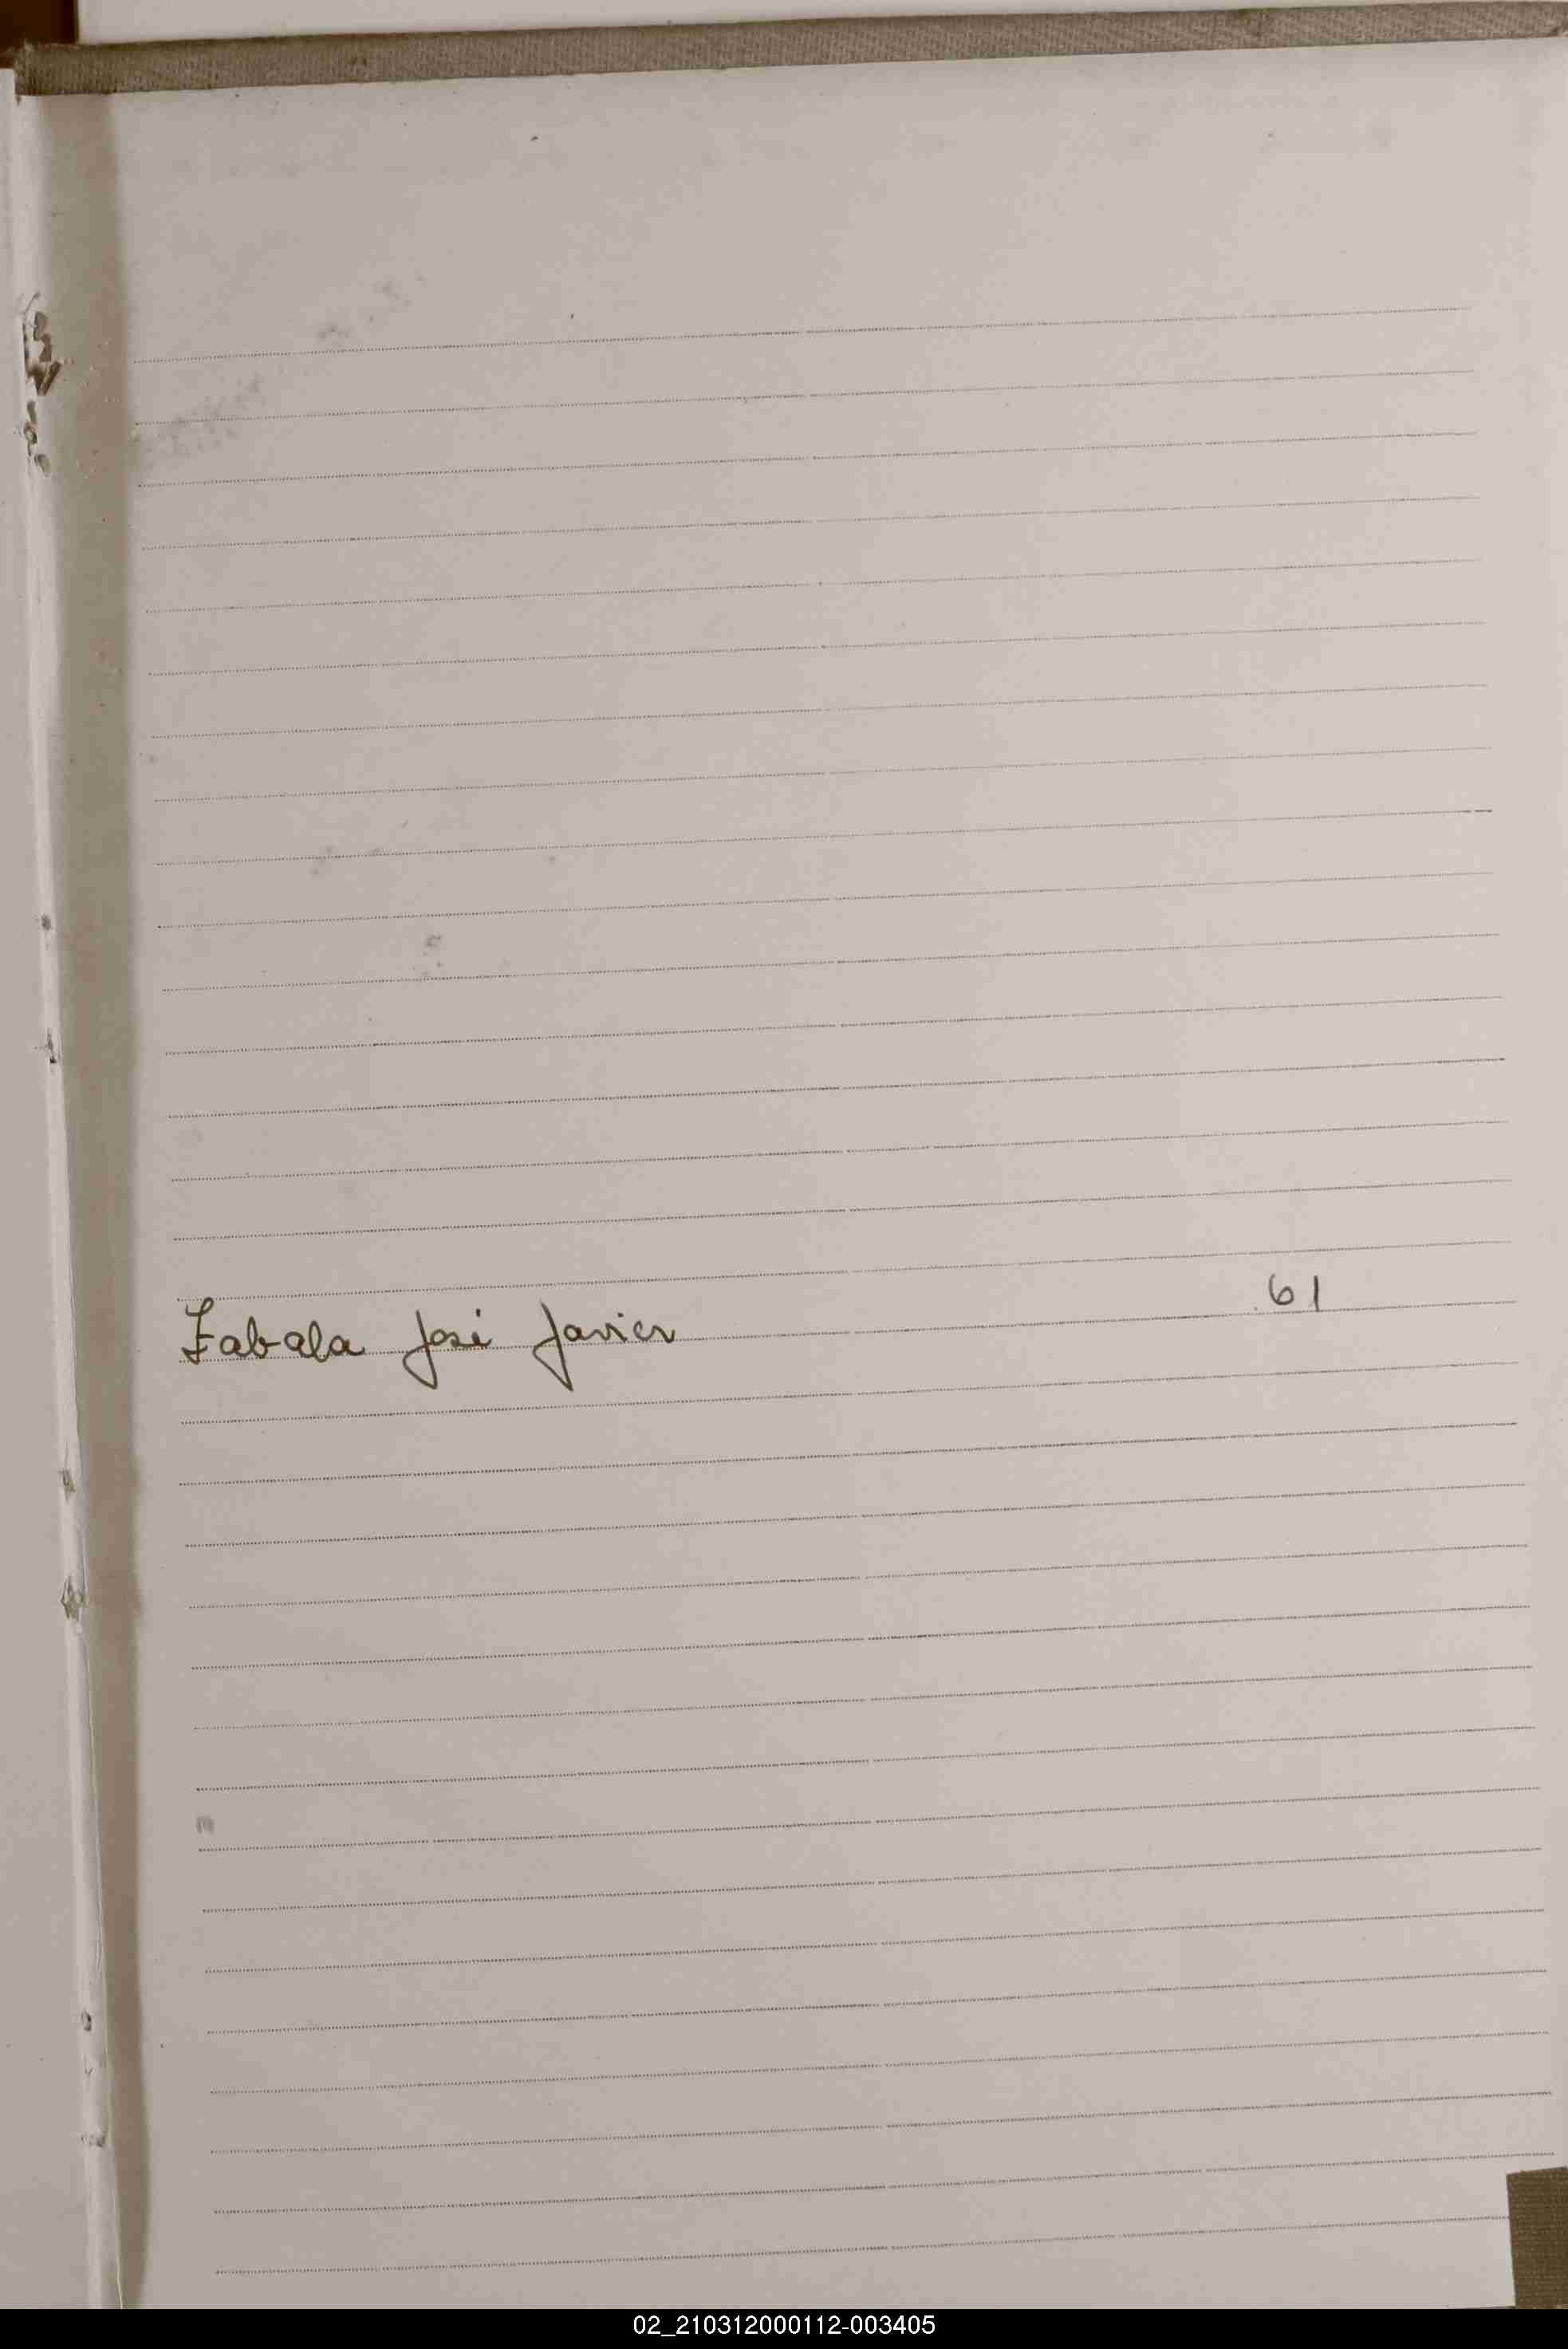 Zabala José Javier 61
02_210312000112-003405